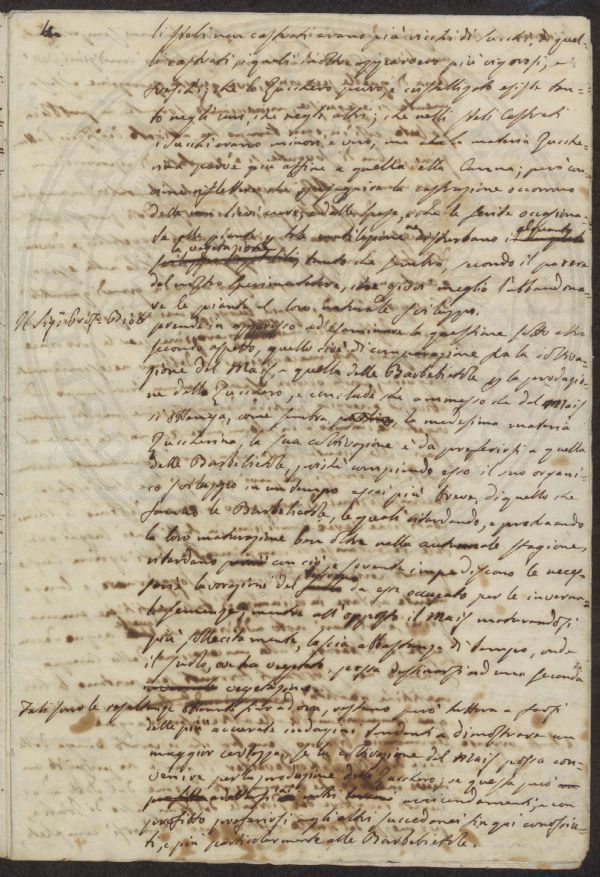 4
li steli non castrati erano più ricchi di succhi, di quel-
li castrati, i quali inoltre apparvero più vigorosi, e
freschi; che lo Zucchero puro e cristallizzato esiste tan-
to negli uni, che negli altri; che nelli steli castrati
i succhi erano minori, è vero, ma che la materia Zucche-
rina parve più affine a quella della Canna; però con-
che la castrazione occorrono
delle cure, e delle spese, e che le ferite occasiona-
te alle piante tale mutilazione disturbano il
la vegetazione tanto che sembra, secondo il parere
del nostro Sperimentatore, che giovi meglio l'abbandona-
re le piante al loro naturale sviluppo.
Il Sigr.
prende in appresso ad esaminare la questione sotto altro
secondo aspetto, quello cioè di comparazione fra la coltiva-
zione del Mais e quella delle Barbebietole la produzio-
ne dello Zucchero, e conclude che ammesso che dal Mais
si ottenga, come sembra, la medesima materia
Zuccherina, la sua coltivazione è da preferirsi a quella
delle Barbebietole, poichè compiendo esso il suo organi-
co sviluppo in un tempo assai più breve di quello che
facciano le Barbebietole, le quali ritardando, e producendo
la loro maturazione ben oltre nella autunnale stagione,
ritardano con ciò, e sovente impediscono le neces-
sarie lavorazioni del terreno da esse occupato per le inverna-
li semenze, mentre all'opposto il Mais maturandosi
più sollecitamente, lascia abbastanza di tempo, onde
il suolo, ove ha vegetato possa destinarsi ad una seconda
vegetazione.
Tali sono le resultanze ottenute fino ad ora, restano però tuttora a farsi
delle più accurate indagini tendenti a dimostrare con
maggior certezza, se la coltivazione del Mais possa con-
venire per la produzione dello Zucchero; se questa può
adottarsi nelli con
profitto preferirsi agli altri succedanei fin qui conosciu-
ti, e più particolarmente alle Barbebietole.